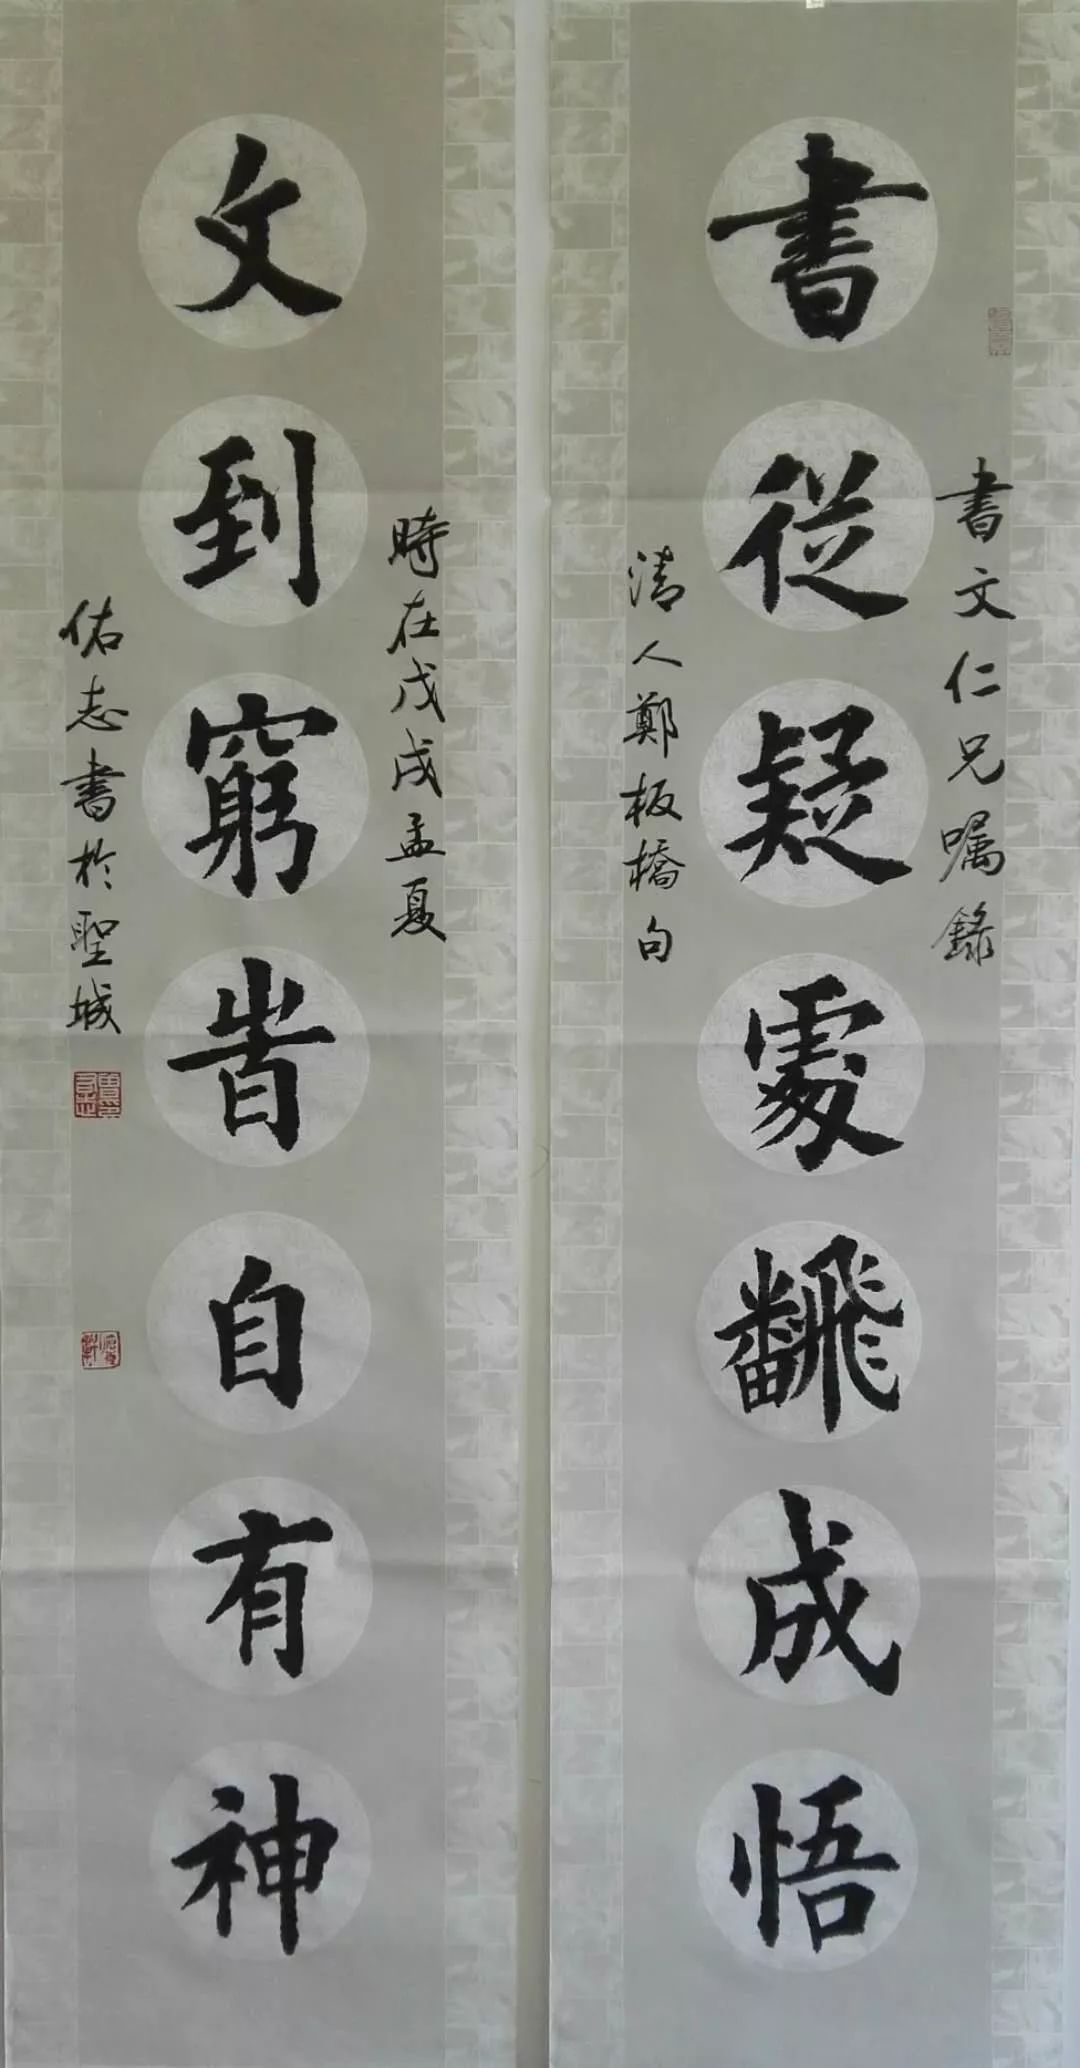 書文仁兄嘱錄
書従疑處飜成悟
清人鄭板橋句
時在戊戌孟夏
文到窮旹自有神
佑志書於聖城